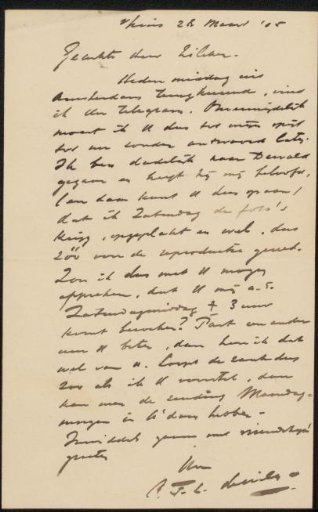 Huis 26 Maart '05
Geachte Heer Zilcken.
Heden middag uit
Amsterdam terugkeerend, vind
ik Uw telegram. Onmiddelijk
moest ik U dus tot mijn spijt
tot nu zonder antwoord laten.
Ik ben dadelijk naar
gegaan en heeft hij mij beloofd,
(en daar kunt U dus op aan)
dat ik Zaturdag de foto's
krijg, opgeplakt en wel, dus
zóó voor de reproductie gereed.
Zou ik dus met U mogen
afspreken, dat U mij a.s.
Zaturdagmiddag ± 3 uur
komt bezoeken? Past een ander
uur U beter, dan hoor ik dat
wel van U. Loopt de zaak dus
zoo als ik U voorstel, dan
kan men de zending Maandag-
morgen in A'dam hebben.
Inmiddels geheel met vriendelijke
groeten
Uw